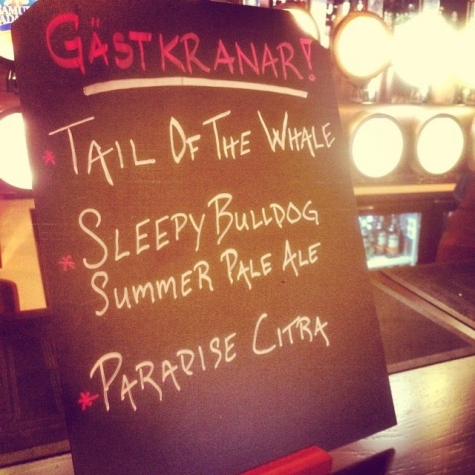 GÄSTKRANAR!
* TAIL OF THE WHALE
* SLEEPY BULLDOG
SUMMER PALE ALE
* PARADISE CITRA